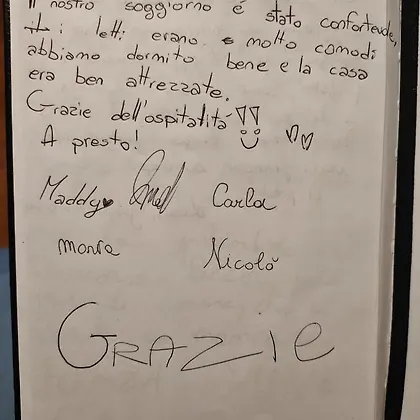 Il nostro soggiorno é stato confortevole,
i letti erano e molto comodi
abbiamo dormito bene e la casa
era ben attrezzate.
Grazie dell'ospitalitá !!
A presto!
Maddy Carla
Nicoló
GRAZIE